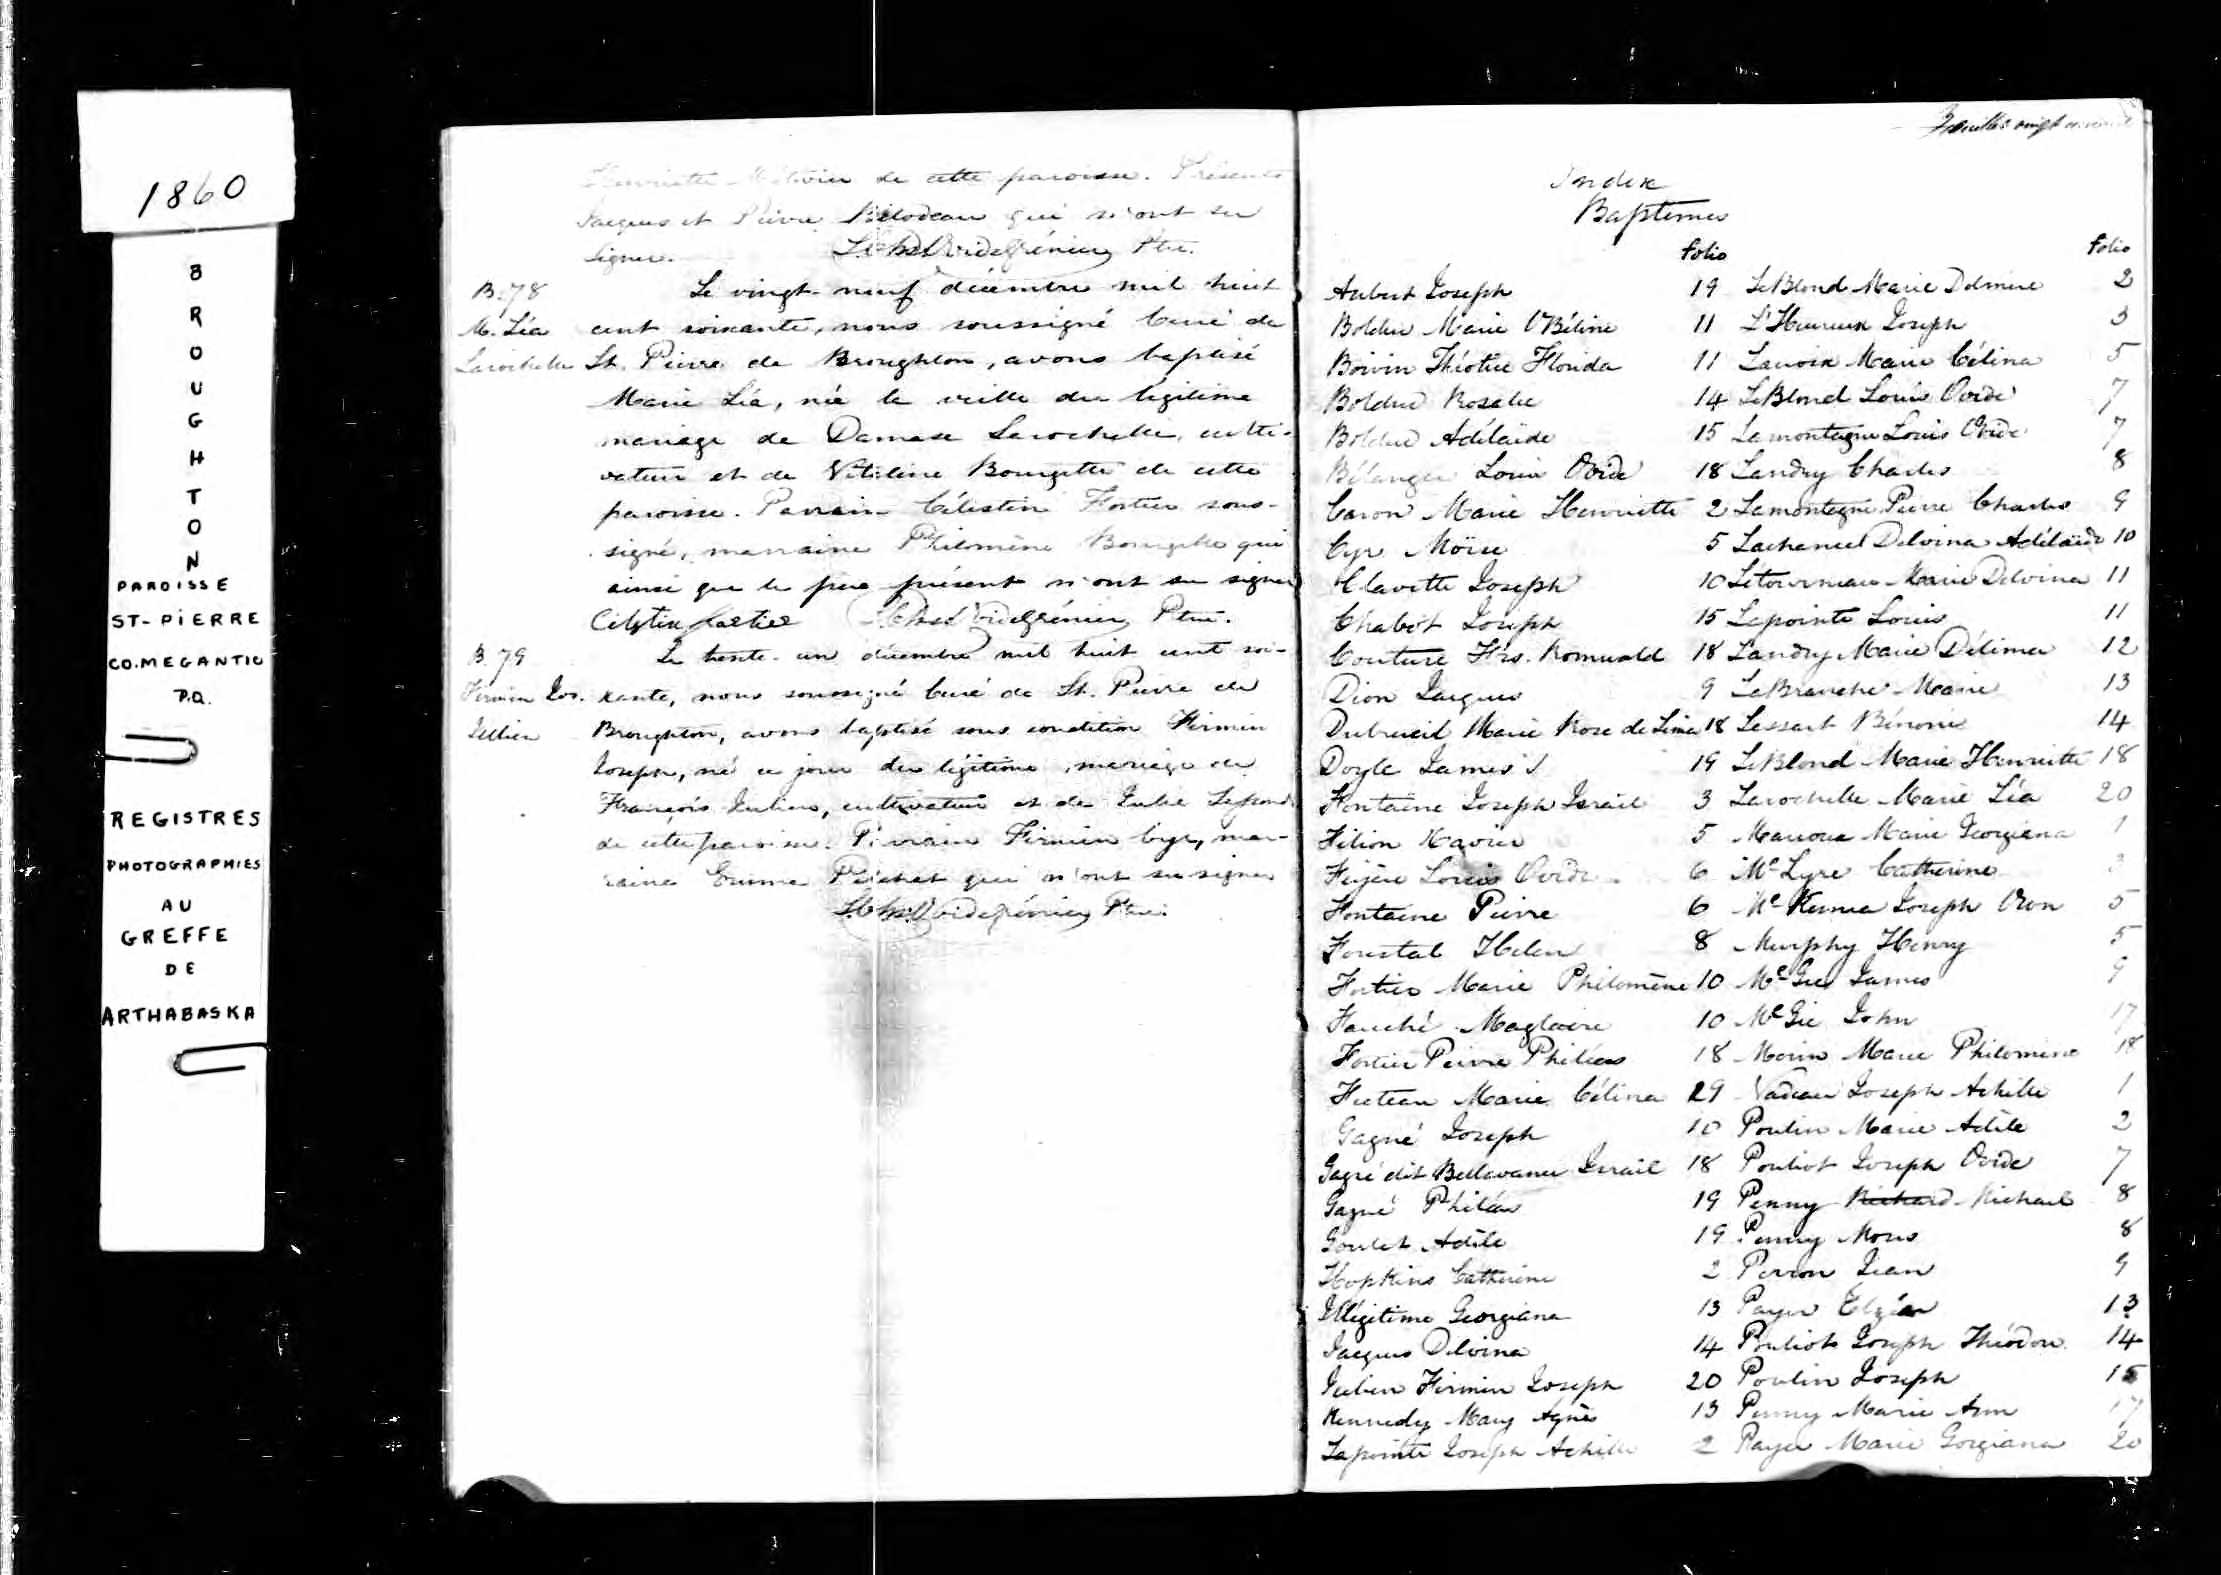 1860
BROUGHTON
PAROISSE
ST-PIERRE
CO. MEGANTIC
P.Q.
REGISTRES
PHOTOGRAPHIES
AU
GREFFE
DE
ARTHABASKA
Henriette de cette paroisse. Présents
Jacques et Pierre Bilodeau qui n'ont su
signer. Ptre.
B. 78
M. Léa
Larochelle
Le vingt-neuf décembre mil huit
cent soixante, nous soussigné Curé de
St. Pierre de Broughton, avons baptisé
Marie Léa, née la veille du légitime
mariage de Damase Larochelle, culti-
vateur et de Bourgette de cette
paroisse. Parrain Célestin Fortier sous-
signé, marraine Philomène Bourgette qui
ainsi que le père présent n'ont su signer
Ptre.
B. 79
Firmin Jos.
Julien
Le trente-un décembre mil huit cent soi-
xante, nous soussigné Curé de St. Pierre de
Broughton, avons baptisé sous condition Firmin
Joseph, né ce jour du légitime mariage de
François Julien, cultivateur et de Julie
de cette paroisse. Parrain Firmin Cyr, mar-
raine Emma qui n'ont su signer
Ptre.
Index
Baptêmes
folio
Aubert Joseph 19
Bolduc Marie 11
Boivin Florida 11
Bolduc Rosalie 14
Bolduc Adélaïde 15
Bélanger Louis Ovide 18
Caron Marie Henriette 2
Cyr Moïse 5
Clavette Joseph 10
Chabot Joseph 15
Couture Frs. Romuald 18
Dion Jacques 9
Dubreuil Marie Rose de Lima 18
Doyle James 19
Fontaine Joseph Israïl 3
Filion Xavier 5
Louis Ovide 6
Fontaine Pierre 6
Forestal Helen 8
Fortier Marie Philomène 10
Fauché Magloire 10
Fortier Pierre Philéas 18
Marie Célina 19
Gagné Joseph 10
Gagné dit Bellavance Israïl 18
Gagné Philéas 19
Goulet Adèle 19
Hopkins Catherine 2
Illégitime Georgiana 13
Jacques Delvina 14
Julien Firmin Joseph 20
Kennedy Mary Agnès 13
Lapointe Joseph Achille 2
folio
LeBlond Marie 2
L'Heureux Joseph 3
Lacroix Marie Célina 5
LeBlond Louis Ovide 7
Lamontagne Louis Ovide 7
Landry Charles 8
Lamontagne Pierre Charles 9
Lachance Delvina Adélaïde 10
Letourneau Marie Delvina 11
Lapointe Louis 11
Landry Marie Délima 12
LaBranche Marie 13
Lessart Bénonie 14
LeBlond Marie Henriette 18
Larochelle Marie Léa 20
Marie Georgiana 1
Catherine
Joseph 5
Murphy Henry 5
McGee James 9
McGie John 17
Morin Marie Philomène 18
Nadeau Joseph Achille 1
Poulin Marie Adèle 2
Pouliot Joseph Ovide 7
Penny Richard Michael 8
Penny 8
Perron Jean 9
Payer Elzéar 13
Pouliot Joseph Théodore 14
Poulin Joseph 15
Penny Marie Ann 17
Payer Marie Gorgiana 20